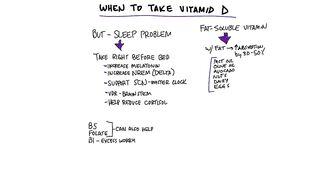 WHEN TO TAKE VITAMID D
BUT - SLEEP PROBLEM
TAKE RIGHT BEFORE BED
-INCREASE MELATONIN
-INCREASE NREM (DELTA)
-SUPPORT SCN - MASTER CLOCK
-VDR - BRAINSTEM
-HELP REDUCE CORTISOL
B5
FOLATE
CAN ALSO HELP
B1 - EXCESS WORRY
FAT-SOLUBLE VITAMIN
W/ FAT → ↑ABSORPTION,
BY 30-50%
OLIVE OIL
AVOCADO
NUTS
DAIRY
EGGS